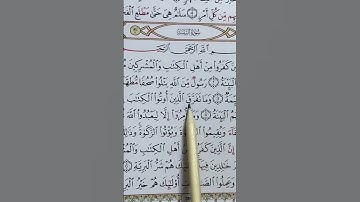 مِّن كُلِّ أَمْرٍ ۝٤ سَلَٰمٌ هِيَ حَتَّىٰ مَطْلَعِ
سُورَةُ البَيِّنَةِ
بِسْمِ ٱللَّهِ ٱلرَّحْمَٰنِ ٱلرَّحِيمِ
كَفَرُوا۟ مِنْ أَهْلِ ٱلْكِتَٰبِ وَٱلْمُشْرِكِينَ
ٱلْبَيِّنَةُ ۝١ رَسُولٌ مِّنَ ٱللَّهِ يَتْلُوا۟ صُحُفًا
۝٣ وَمَا تَفَرَّقَ ٱلَّذِينَ أُوتُوا۟ ٱلْكِتَٰبَ
ٱلْبَيِّنَةُ ۝٤ إِلَّا لِيَعْبُدُوا۟ ٱللَّهَ
وَيُقِيمُوا۟ وَيُؤْتُوا۟ ٱلزَّكَوٰةَ
إِنَّ ٱلَّذِينَ كَفَرُوا۟ أَهْلِ ٱلْكِتَٰبِ
خَٰلِدِينَ فِيهَآ أُو۟لَٰٓئِكَ هُمْ شَرُّ ٱلْبَرِيَّةِ
وَعَمِلُوا۟ أُو۟لَٰٓئِكَ هُمْ خَيْرُ